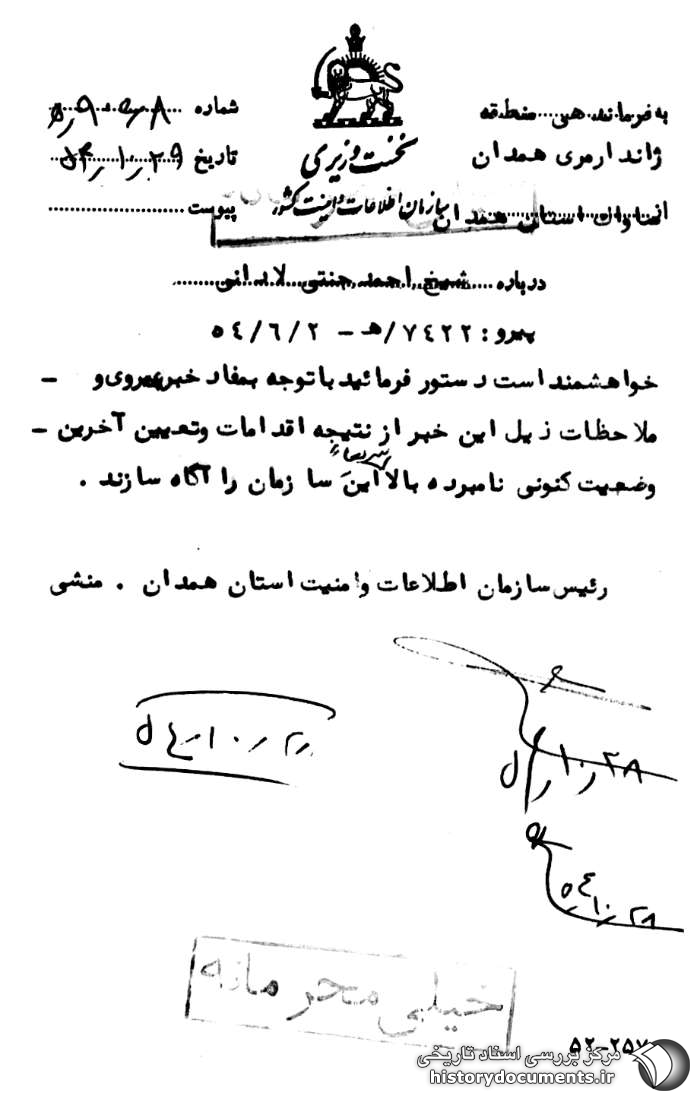 به فرماندهی منطقه
ژاندارمری همدان
از ساواک استان همدان
نخست وزیری
سازمان اطلاعات و امنیت کشور
شماره
تاریخ ۵۴٫۱۰٫۲۹
پیوست
درباره شیخ احمد جنتی لادانی
پیرو: ۷۴۲۲/هـ - ۵۴/۶/۲
خواهشمند است دستور فرمائید باتوجه بمفاد خبر پیروی و -
ملاحظات ذیل این خبر از نتیجه اقدامات وتعیین آخرین -
وضعیت کنونی نامبرده بالا این سازمان را سریعاً آگاه سازند .
رئیس سازمان اطلاعات وامنیت استان همدان . منشی
۵۴٫۱۰٫۲۸
۵۴٫۱۰٫۲۸
خیلی محرمانه
۵۲-۲۵۷
مرکز بررسی اسناد تاریخی
historydocuments.ir